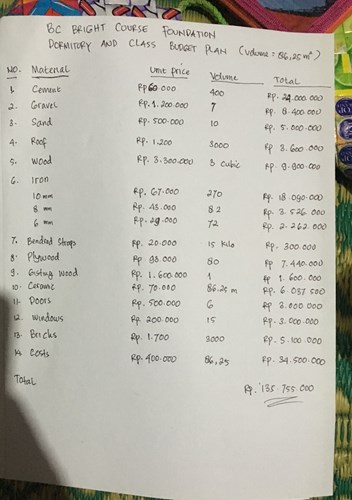 BC BRIGHT COURSE FOUNDATION
DORMITORY AND CLASS BUDGET PLAN (Volume = 86,25 m²)
NO. Material Unit price Volume Total
1. Cement Rp 60.000 400 Rp. 24.000.000
2. Gravel Rp. 1.200.000 7 Rp. 8.400.000
3. Sand Rp. 500.000 10 Rp. 5.000.000
4. Roof Rp. 1.200 3000 Rp. 3.600.000
5. Wood Rp. 3.300.000 3 Cubic Rp. 9.900.000
6. Iron
10 mm Rp. 67.000 270 Rp. 18.090.000
8 mm Rp. 43.000 82 Rp. 3.526.000
6 mm Rp. 29.000 72 Rp. 2.262.000
7. Bendrad Straps Rp. 20.000 15 Kilo Rp. 300.000
8. Plywood Rp. 93.000 80 Rp. 7.440.000
9. Gisting Wood Rp. 1.600.000 1 Rp 1.600.000
10. Ceramic Rp. 70.000 86.25 m Rp. 6.037.500
11. Doors Rp. 500.000 6 Rp 3.000.000
12. Windows Rp. 200.000 15 Rp. 3.000.000
13. Bricks Rp. 1.700 3000 Rp. 5.100.000
14. Costs Rp. 400.000 86,25 Rp. 34.500.000
Total Rp. 135.755.000